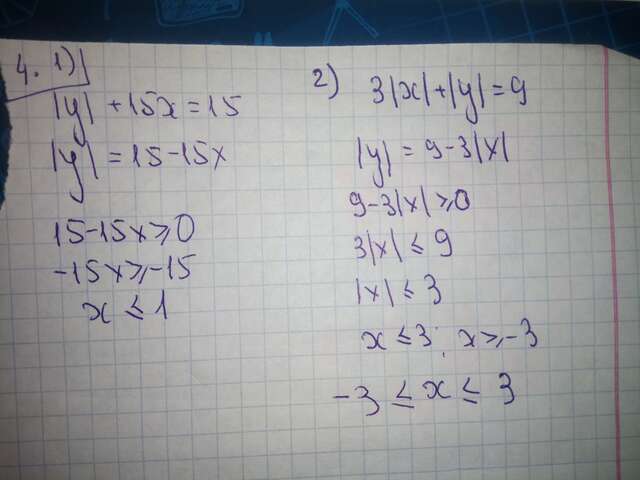 4. 1)
|y| + 15x = 15
|y| = 15 - 15x
15 - 15x ≥ 0
-15x ≥ -15
x ≤ 1
2) 3|x| + |y| = 9
|y| = 9 - 3|x|
9 - 3|x| ≥ 0
3|x| ≤ 9
|x| ≤ 3
x ≤ 3; x ≥ -3
-3 ≤ x ≤ 3